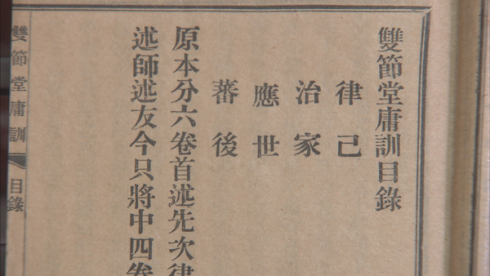 雙節堂庸訓目錄
律己
治家
應世
蕃後
原本分六卷首述先次律
述師述友今只將中四卷
雙節堂庸訓
目錄